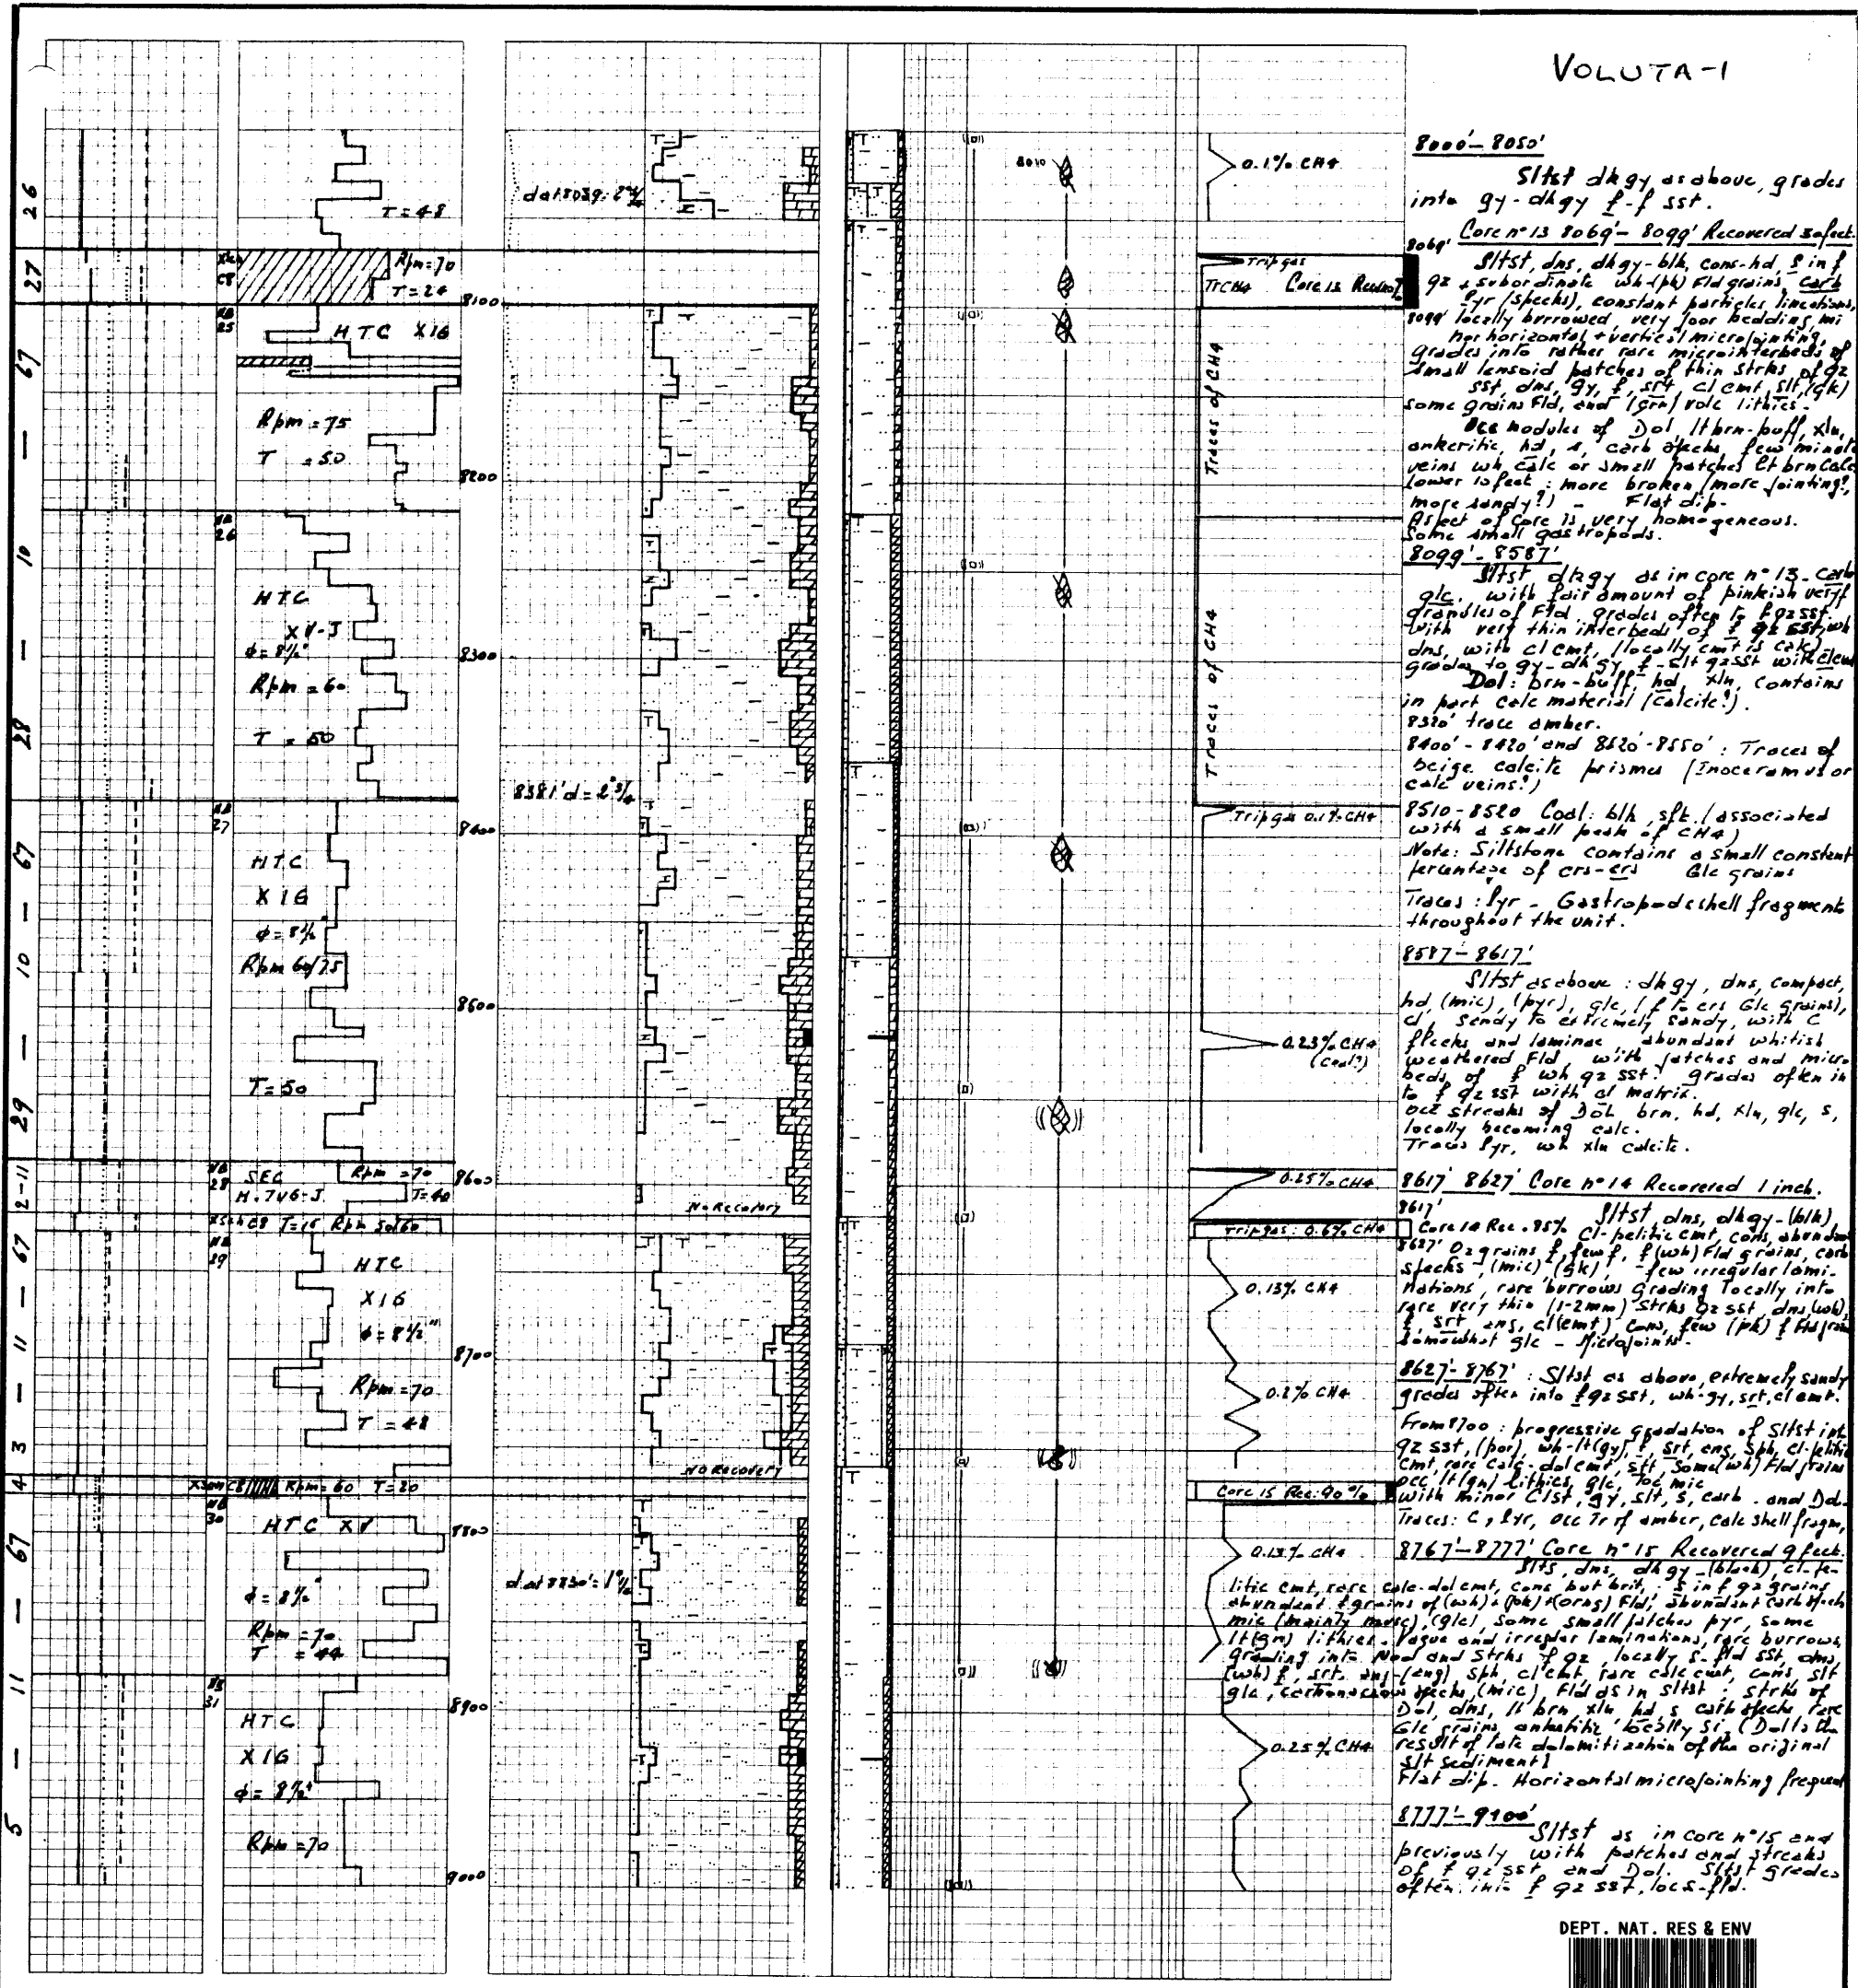 VOLUTA-1
26
T=48
d at 8039: 2°¾
8010
0.1% CH4
27
C8
Rpm=70
T=24
8100
Trip gas
Tr CH4
67
NB
25
HTC X1G
Rpm = 75
T = 50
8200
Traces of CH4
10
NB
26
HTC
XV-J
φ = 8½"
Rpm = 60
T = 50
8300
Traces of CH4
28
8381' d = 2°¾
NB
27
8400
Trip gas 0.1% CH4
67
HTC
X1G
φ = 8½
Rpm 60/75
10
8600
T=50
0.23% CH4
(Coal?)
29
NB
28
SEC
Rpm = 70
H.7VG-J
T=40
8600
0.25% CH4
2-11
No Recovery
C8 T=15 Rpm 50/60
Trip gas: 0.6% CH4
67
NB
29
HTC
X1G
φ = 8½"
0.13% CH4
11
8700
Rpm = 70
T = 48
0.2% CH4
3
NO RECOVERY
4
C8 Rpm = 60 T=20
Core 15 Rec: 90%
NB
30
HTC XV
8800
67
0.13% CH4
φ = 8½"
d at 8830' = 1°½
Rpm = 70
T = 44
11
NB
31
8900
HTC
X1G
φ = 8½"
0.25% CH4
5
Rpm = 70
9000
8000'-8050'
Sltst dkgy as above, grades
into gy-dkgy f-f sst.
Core n°13 8069'-8099' Recovered 30 feet.
8069'
Sltst, dns, dkgy-blk, cons-hd, s in f
qz & subordinate wh-(pk) Fld grains, carb
Pyr (specks), constant particles lineations,
8099' locally burrowed, very poor bedding, mi
nor horizontal + vertical microjointing,
grades into rather rare microinterbeds of
small lensoid patches of thin strks of qz
sst, dns, gy, f, srt, cl cmt, slt, (gk)
some grains Fld, and (grn) volc lithics.
Occ nodules of Dol, lt brn-buff, xln,
ankeritic, hd, s, carb specks few minute
veins wh calc or small patches lt brn Calc
Lower 10 feet: more broken (more jointing?,
more sandy?) - Flat dip-
Aspect of Core is very homogeneous.
Some small gastropods.
8099'-8587'
Sltst dkgy as in core n°13. Carb
glc. with fair amount of pinkish very f
granules of Fld, grades often to f qz sst.
with very thin interbeds of f qz sst, wh
dns, with cl cmt, (locally cmt is calc)
grades to gy-dkgy, f-slt qz sst with cl cmt
Dol: brn-buff, hd, xln, contains
in part calc material (Calcite?).
8320' trace amber.
8400'-8420' and 8520'-8550': Traces of
beige calcite prismes (Inoceramus or
calc veins?)
8510-8520 Coal: blk, sft. (associated
with a small peak of CH4)
Note: Siltstone contains a small constant
percentage of crs-crs Glc grains
Traces: Pyr - Gastropode shell fragments
throughout the unit.
8587'-8617'
Sltst as above: dkgy, dns, compact,
hd, (mic), (pyr), glc, (f to crs Glc grains),
cl, sandy to extremely sandy, with C
flecks and laminae, abundant whitish
weathered Fld, with patches and micro
beds of f wh qz sst: grades often in
to f qz sst with cl matrix.
Occ streaks of Dol, brn, hd, xln, glc, s,
locally becoming calc.
Traces Pyr, wh xln calcite.
8617' 8627' Core n°14 Recovered 1 inch.
8617'
Sltst, dns, dkgy-(blk)
Cl-pelitic cmt, cons, abundant
8627' Qz grains f, few f, f (wh) Fld grains, carb
specks, (mic) (gk), few irregular lami-
nations, rare burrows grading locally into
rare very thin (1-2mm) strks qz sst, dns, (wh),
f, srt, ang, cl (cmt) cons, few (pk) f Fld grain
somewhat glc - Microjoints.
8627'-8767': Sltst as above, extremely sandy
grades often into f qz sst, wh-gy, srt, cl cmt.
From 8700: progressive gradation of Sltst into
qz sst, (por), wh-lt(gy), f, srt, ang, sph, cl-pelitic
cmt, rare calc-dol cmt, slt. Some (wh) Fld grains
occ lt(gn) lithics, glc, loc mic
with minor Clst, gy, slt, s, carb. and Dol.
Traces: C, Pyr, occ Tr of amber, calc shell fragm,
8767'-8777' Core n°15 Recovered 9 feet.
Slts, dns, dkgy-(black), cl-pe-
litic cmt, rare calc-dol cmt, cons but brit, s in f qz grains
abundant f grains of (wh) + (pk) + (orng) Fld, abundant carb specks
mic (mainly musc), (glc), some small patches pyr, some
lt(gn) lithics. Vague and irregular laminations, rare burrows,
grading into Nod and strks f qz, locally s-fld sst, dns,
(wh) f, srt, ang-(ang), sph, cl cmt, rare calc cmt, cons, slt
glc, carbonaceous specks, (mic), Fld as in sltst: strks of
Dol, dns, lt brn xln hd s carb specks rare
Glc grains, ankeritic, locally si, (Dol is the
result of late dolomitization of the original
slt sediment)
Flat dip. Horizontal microjointing frequent
8777'-9100'
Sltst as in core n°15 and
previously with patches and streaks
of f qz sst, and Dol. Sltst grades
often into f qz sst, loc s-fld.
DEPT. NAT. RES & ENV